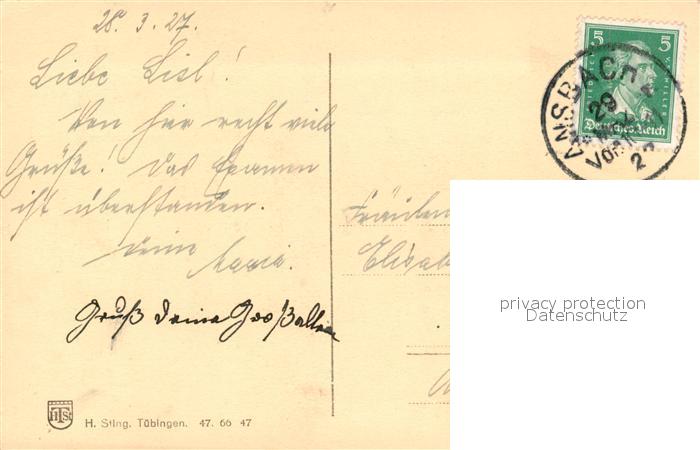 28. 3. 27.
Liebe Lisl!
Von hier recht viele
Grüße! Das Examen
ist überstanden.
Deine
Maria.
Gruß Deine Großeltern
H. Sting, Tübingen. 47. 66 47
HTSt
5 5
Deutsches Reich
ANSBACH
29
Vorm
Fräulein
Elisab
privacy protection
Datenschutz